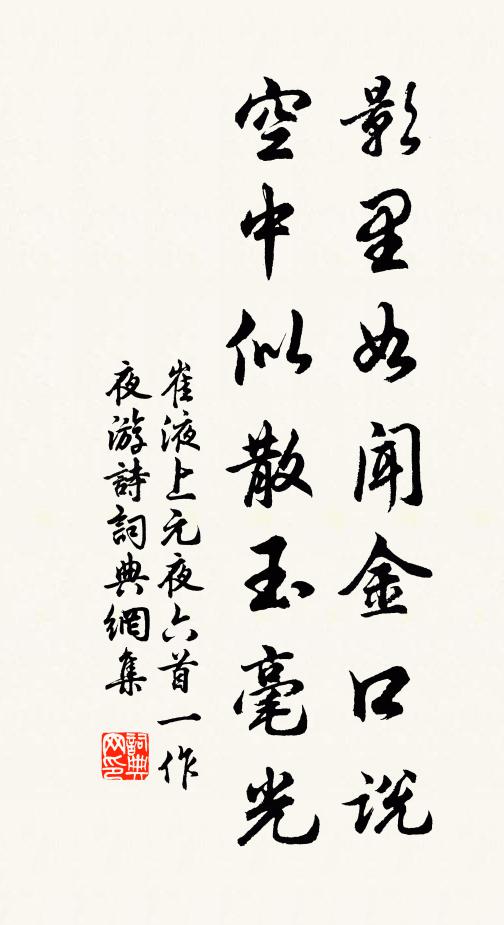 影里如闻金口说
空中似散玉毫光
崔液上元夜六首一作
夜游詩詞典網集
詞典
网印